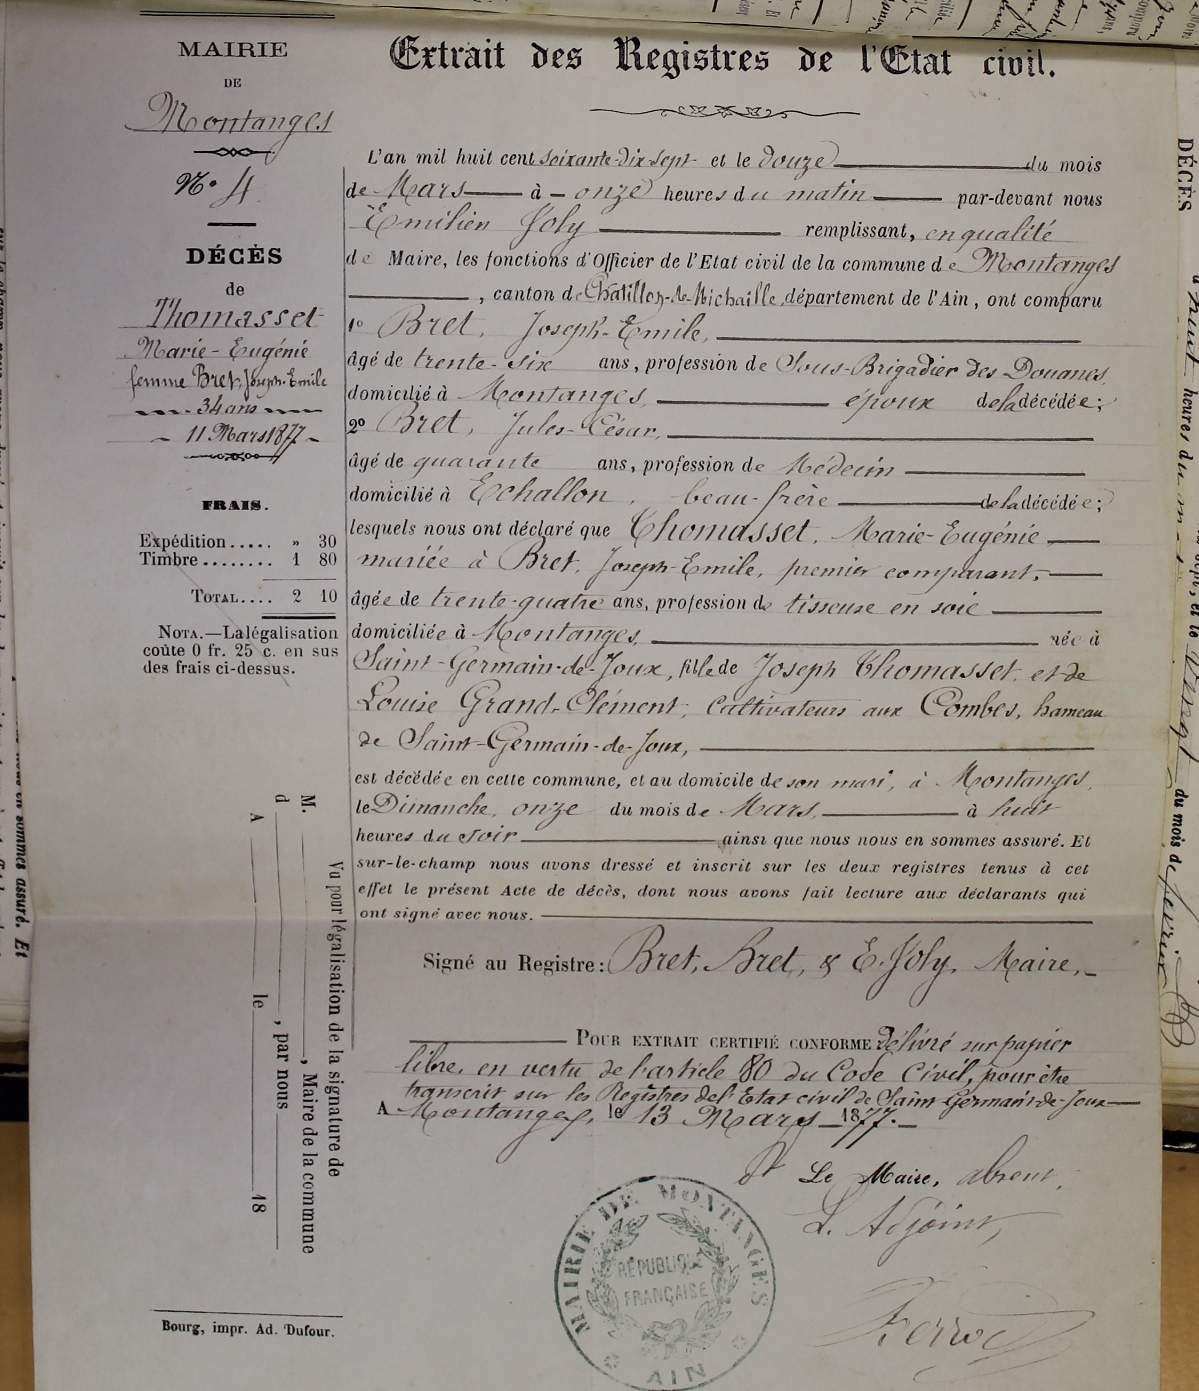 MAIRIE
DE
Montanges
N° 4
DÉCÈS
de
Thomasset
Marie-Eugénie
femme Bret, Joseph-Emile
34 ans
11 Mars 1877
FRAIS.
Expédition..... » 30
Timbre........ 1 80
TOTAL.... 2 10
NOTA.—La légalisation
coûte 0 fr. 25 c. en sus
des frais ci-dessus.
Vu pour légalisation de la signature de
M. , Maire de la commune
d , par nous
A le 18
Bourg, impr. Ad. Dufour.
Extrait des Registres de l'Etat civil.
L'an mil huit cent soixante-dix-sept et le douze du mois
de Mars à onze heures du matin par-devant nous
Emilien Joly remplissant, en qualité
de Maire, les fonctions d'Officier de l'Etat civil de la commune de Montanges
, canton de Châtillon-de-Michaille, département de l'Ain, ont comparu
1° Bret, Joseph-Emile,
âgé de trente-six ans, profession de Sous-Brigadier des Douanes,
domicilié à Montanges, époux de la décédée;
2° Bret, Jules-César,
âgé de quarante ans, profession de Médecin
domicilié à Echallon, beau-frère de la décédée;
lesquels nous ont déclaré que Thomasset, Marie-Eugénie
mariée à Bret, Joseph-Emile, premier comparant,
âgée de trente-quatre ans, profession de tisseuse en soie
domiciliée à Montanges, née à
Saint-Germain-de-Joux, fille de Joseph Thomasset, et de
Louise Grand-Clément, Cultivateurs aux Combes, hameau
de Saint-Germain-de-Joux,
est décédée en cette commune, et au domicile de son mari, à Montanges,
le Dimanche, onze du mois de Mars, à huit
heures du soir ainsi que nous nous en sommes assuré. Et
sur-le-champ nous avons dressé et inscrit sur les deux registres tenus à cet
effet le présent Acte de décès, dont nous avons fait lecture aux déclarants qui
ont signé avec nous.
Signé au Registre: Bret, Bret, & E. Joly, Maire,
POUR EXTRAIT CERTIFIÉ CONFORME Délivré sur papier
libre, en vertu de l'article 80 du Code Civil, pour être
transcrit sur les Registres de l'Etat civil de Saint-Germain-de-Joux
A Montanges, le 13 Mars 1877.
Le Maire, absent,
L'Adjoint,
MAIRIE DE MONTANGES
RÉPUBLIQUE
FRANÇAISE
AIN
DÉCÈS
heures du
du mois de février
sommes assuré. Et